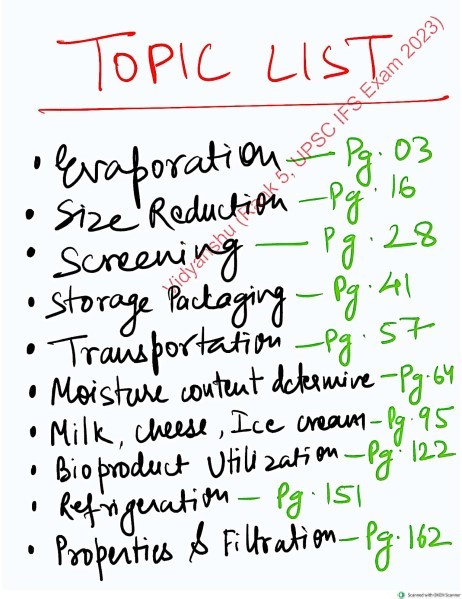 TOPIC LIST
Vidyanshu (Rank 5, UPSC IFS Exam 2023)
• Evaporation — Pg. 03
• Size Reduction — Pg. 16
• Screening — Pg. 28
• Storage Packaging — Pg. 41
• Transportation — Pg. 57
• Moisture content determine — Pg. 64
• Milk, cheese, Ice cream — Pg. 95
• Bioproduct Utilization — Pg. 122
• Refrigeration — Pg. 151
• Properties & Filtration — Pg. 162
Scanned with OKEN Scanner